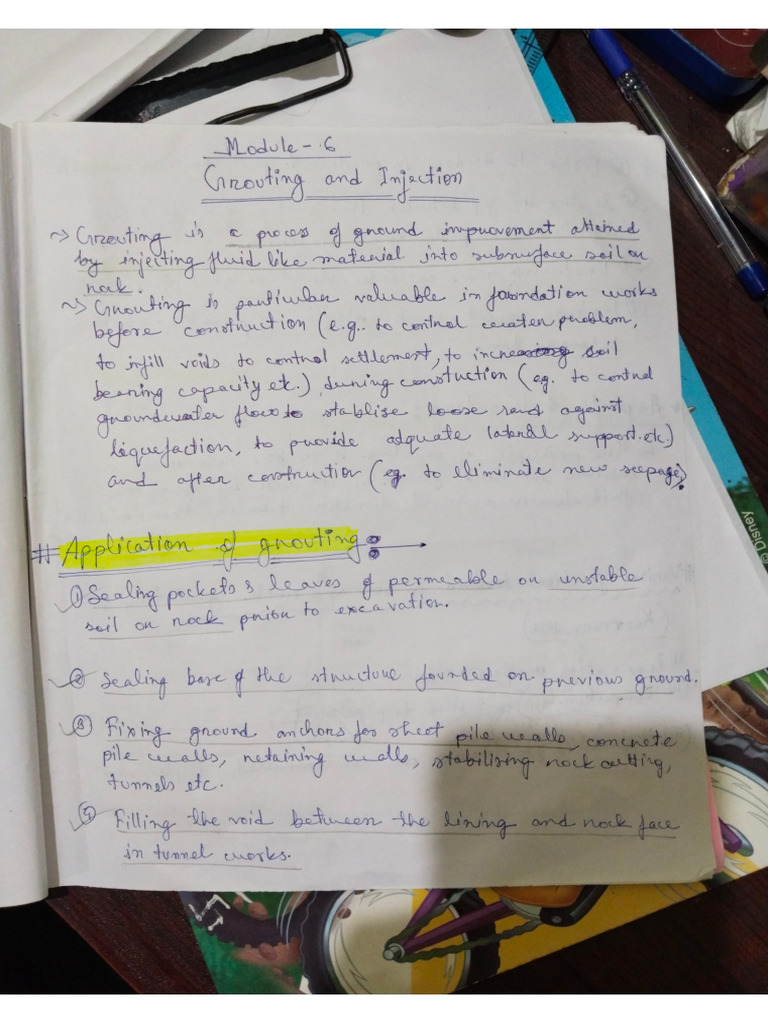 Module - 6
Grouting and Injection
~> Grouting is a process of ground improvement attained
by injecting fluid like material into subsurface soil or
rock.
~> Grouting is particular valuable in foundation works
before construction (e.g. to control water problem,
to infill voids to control settlement, to increasing soil
bearing capacity etc.), during constuction (eg. to control
groundwater flow to stablise loose sand against
liquefaction, to provide adquate lateral support etc.)
and after construction (eg. to eliminate new seepage).
# Application of grouting :
① Sealing pockets & leaves of permeable or unstable
soil or rock prior to excavation.
② Sealing base of the structure founded on previous ground.
③ Fixing ground anchors for sheet pile walls, concrete
pile walls, retaining walls, stabilising rock cutting,
tunnels etc.
Filling the void between the lining and rock face
in tunnel works.
© Disney